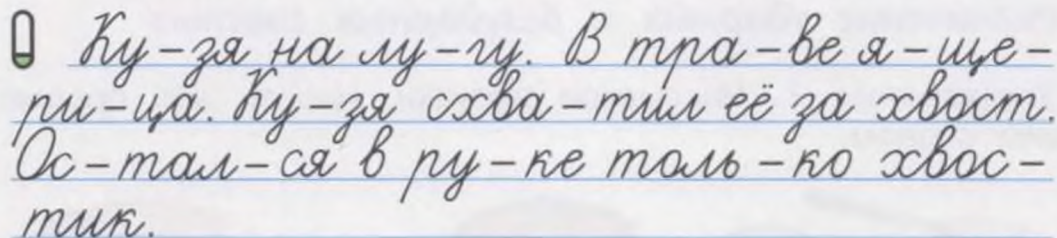 Ку-зя на лу-гу. В тра-ве я-ще-
ри-ца. Ку-зя схва-тил её за хвост.
Ос-тал-ся в ру-ке толь-ко хвос-
тик.